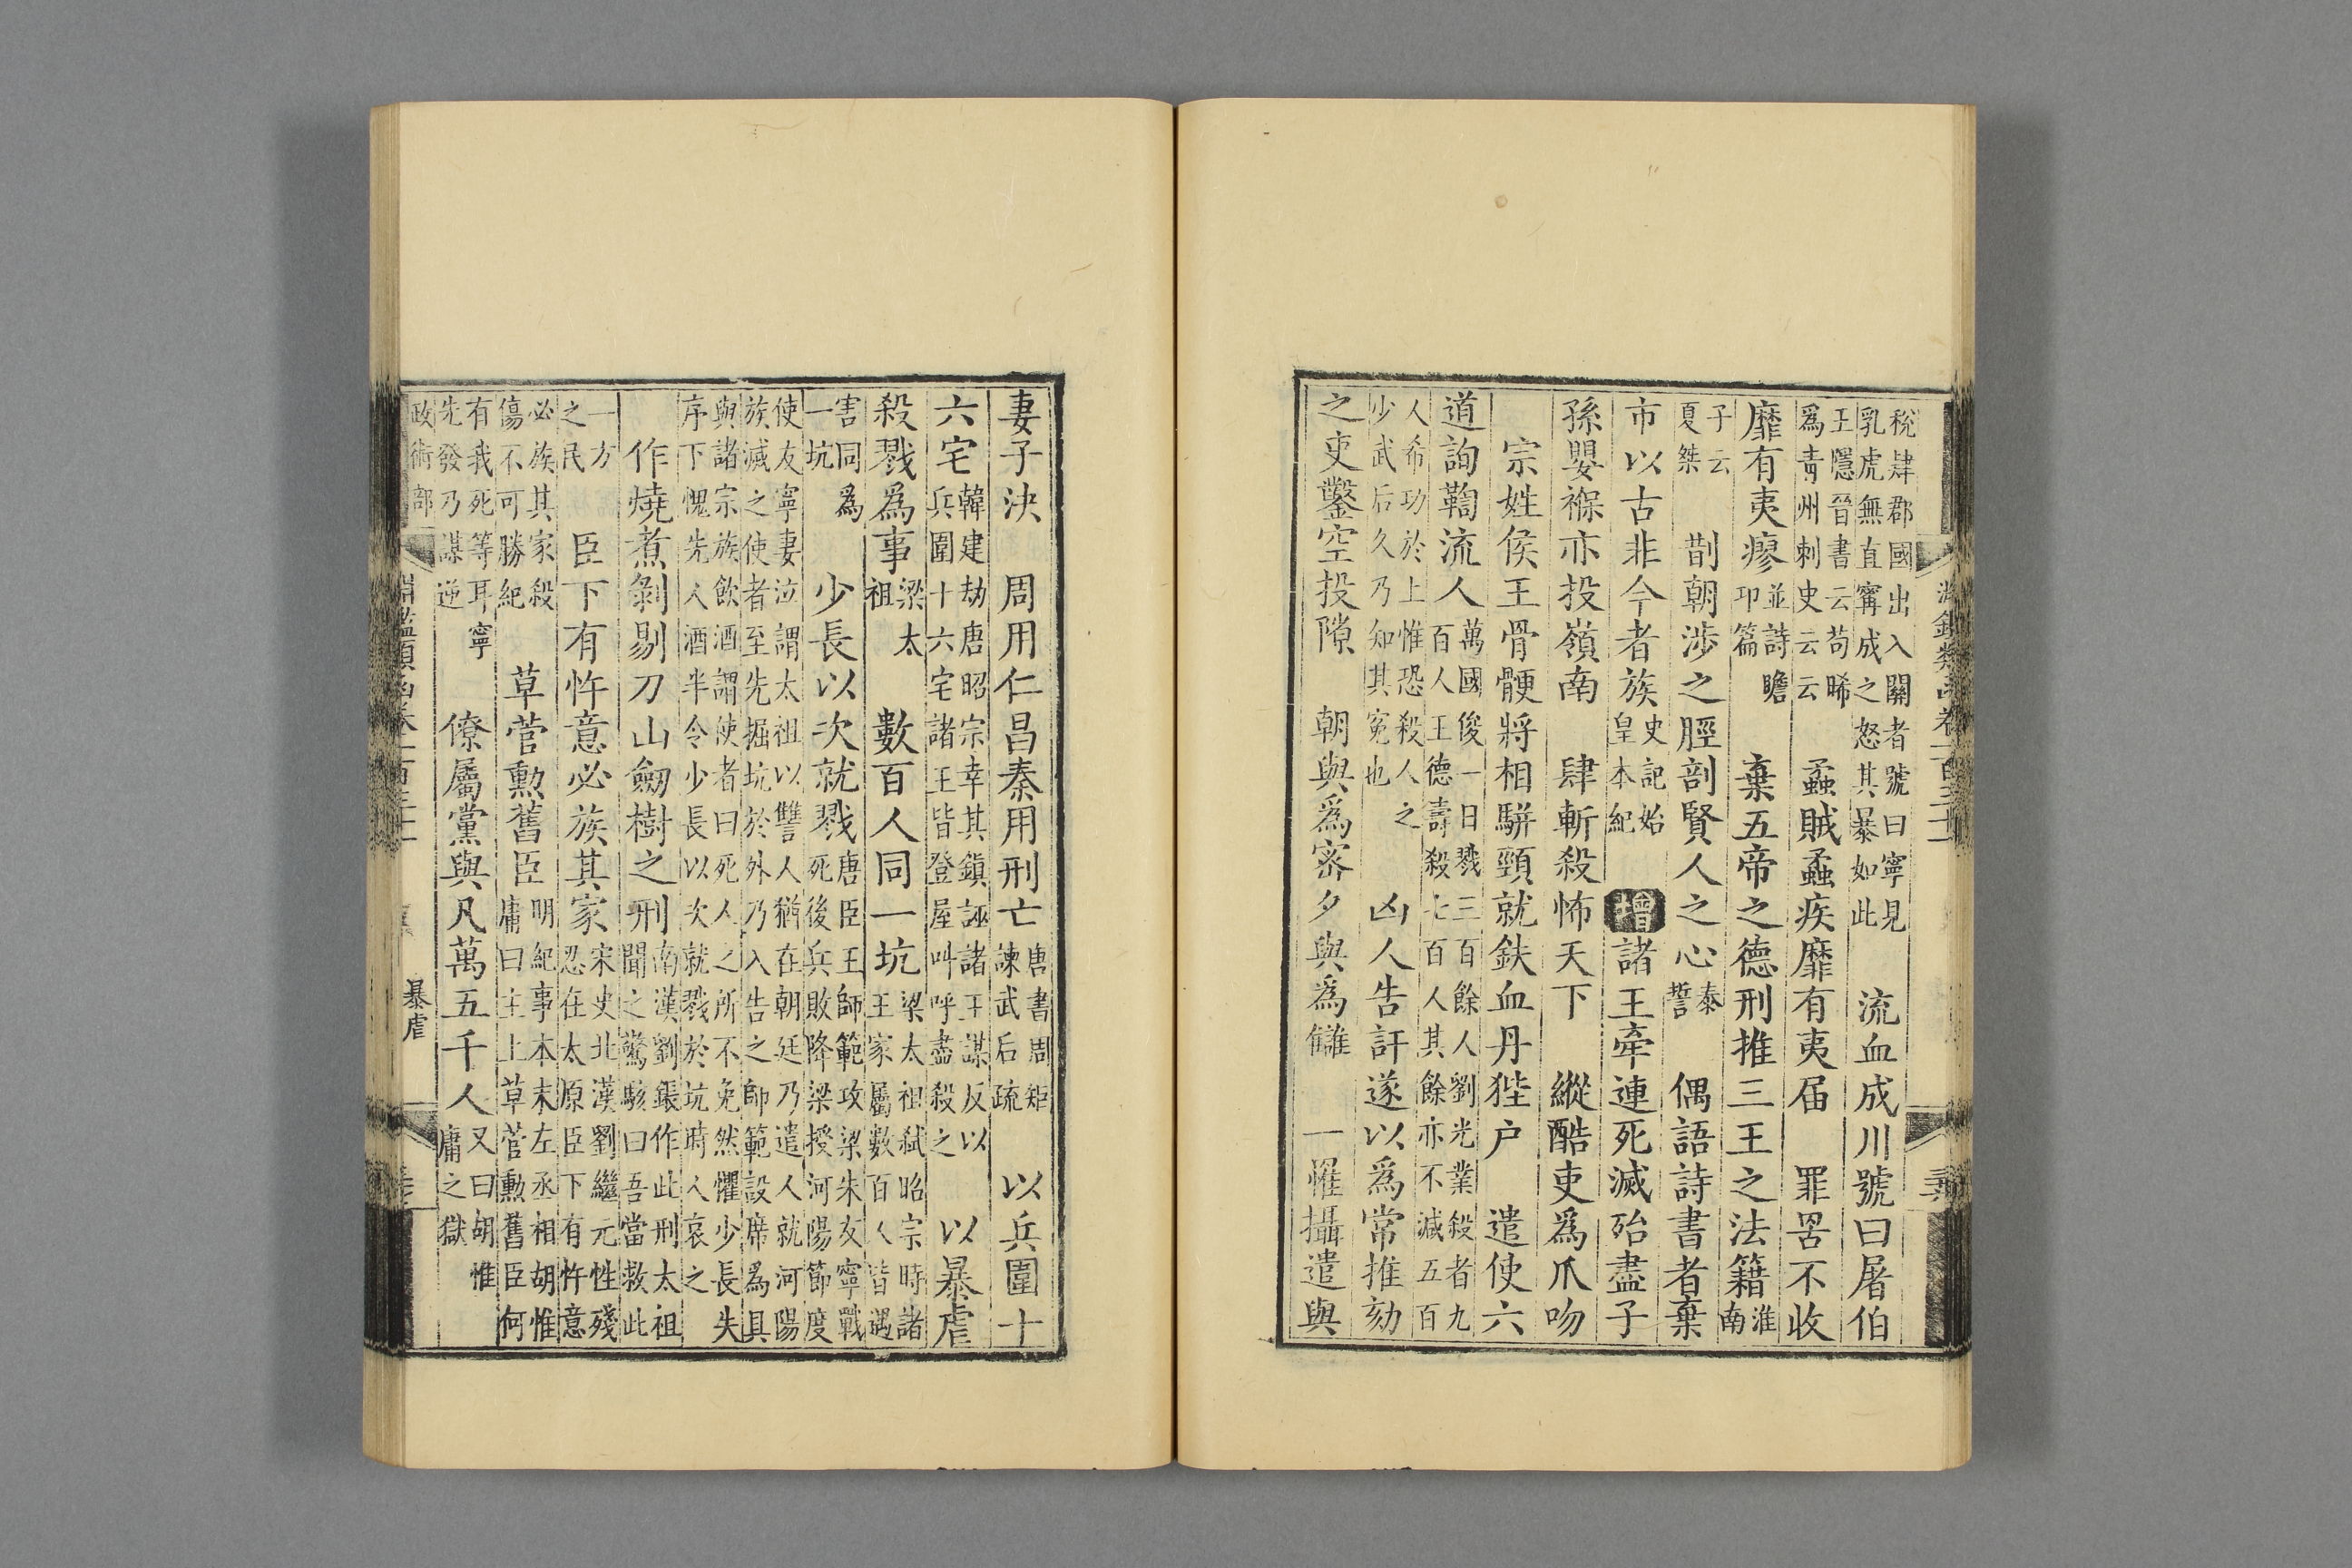 淵鑑類函卷一百三十一
稅肄郡國出入關者號曰寧見乳虎無直寗成之怒其暴如此 流血成川號曰屠伯
王隱晉書云苟晞爲青州刺史云云 蟊賊蟊疾靡有夷届 罪罟不收
靡有夷瘳並詩瞻卬篇 棄五帝之德刑推三王之法籍淮南
子云夏桀 剒朝涉之脛剖賢人之心泰誓 偶語詩書者棄
市以古非今者族史記始皇本紀 增諸王牽連死滅殆盡子
孫嬰褓亦投嶺南 肆斬殺怖天下 縱酷吏爲爪吻
宗姓侯王骨骾將相駢頸就鈇血丹狴户 遣使六
道詢鞫流人萬國俊一日戮三百餘人劉光業殺者九百人王德壽殺七百人其餘亦不減五百
人希功於上惟恐殺人之少武后久乃知其寃也 凶人告訐遂以爲常推劾
之吏鑿空投隙 朝與爲密夕與爲讎 一惟攝遣與
妻子決 周用仁昌秦用刑亡唐書周矩諫武后疏 以兵圍十
六宅韓建劫唐昭宗幸其鎭誣諸王謀反以兵圍十六宅諸王皆登屋叫呼盡殺之 以暴虐
殺戮爲事梁太祖 數百人同一坑梁太祖弑昭宗時諸王家屬數百人皆遇
害同爲一坑 少長以次就戮唐臣王師範攻梁朱友寧戰死後兵敗降梁授河陽節度
使友寧妻泣謂太祖以讐人猶在朝廷乃遣人就河陽族滅之使者至先掘坑於外乃入告之師範設席爲具
與諸宗族飲酒謂使者曰死人之所不免然懼少長失序下愧先人酒半令少長以次就戮於坑時人哀之
作燒煮剝剔刀山劒樹之刑南漢劉鋹作此刑太祖聞之驚駭曰吾當救此
一方之民 臣下有忤意必族其家宋史北漢劉繼元性殘忍在太原臣下有忤意
必族其家殺傷不可勝紀 草菅勳舊臣明紀事本末左丞相胡惟庸曰主上草菅勳舊臣何
有我死等耳寧先發乃謀逆 僚屬黨與凡萬五千人又曰胡惟庸之獄
政術部 淵鑑類函卷一百三十一 暴虐